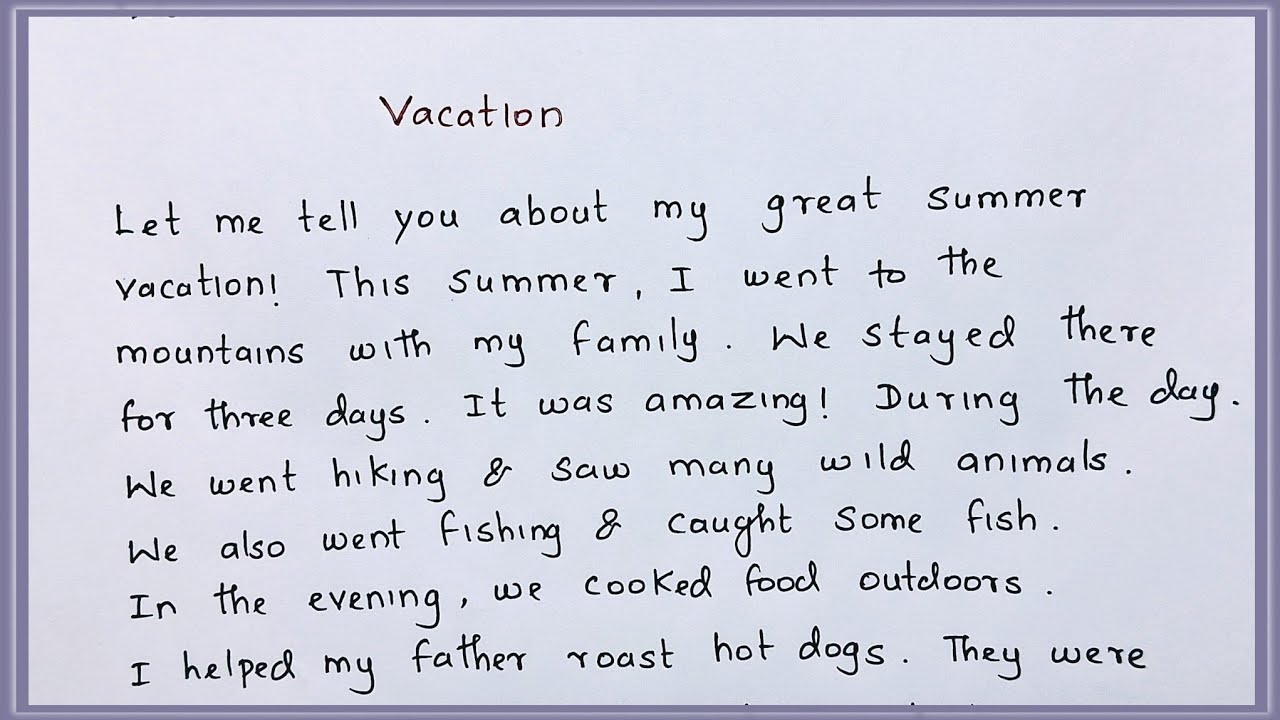 Vacation
Let me tell you about my great summer
vacation! This summer, I went to the
mountains with my family. We stayed there
for three days. It was amazing! During the day.
We went hiking & saw many wild animals.
We also went fishing & caught some fish.
In the evening, we cooked food outdoors.
I helped my father roast hot dogs. They were